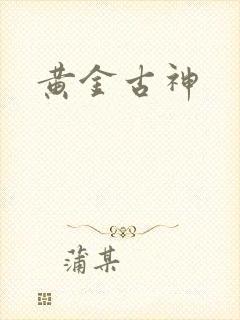 黄金古神
蒲某